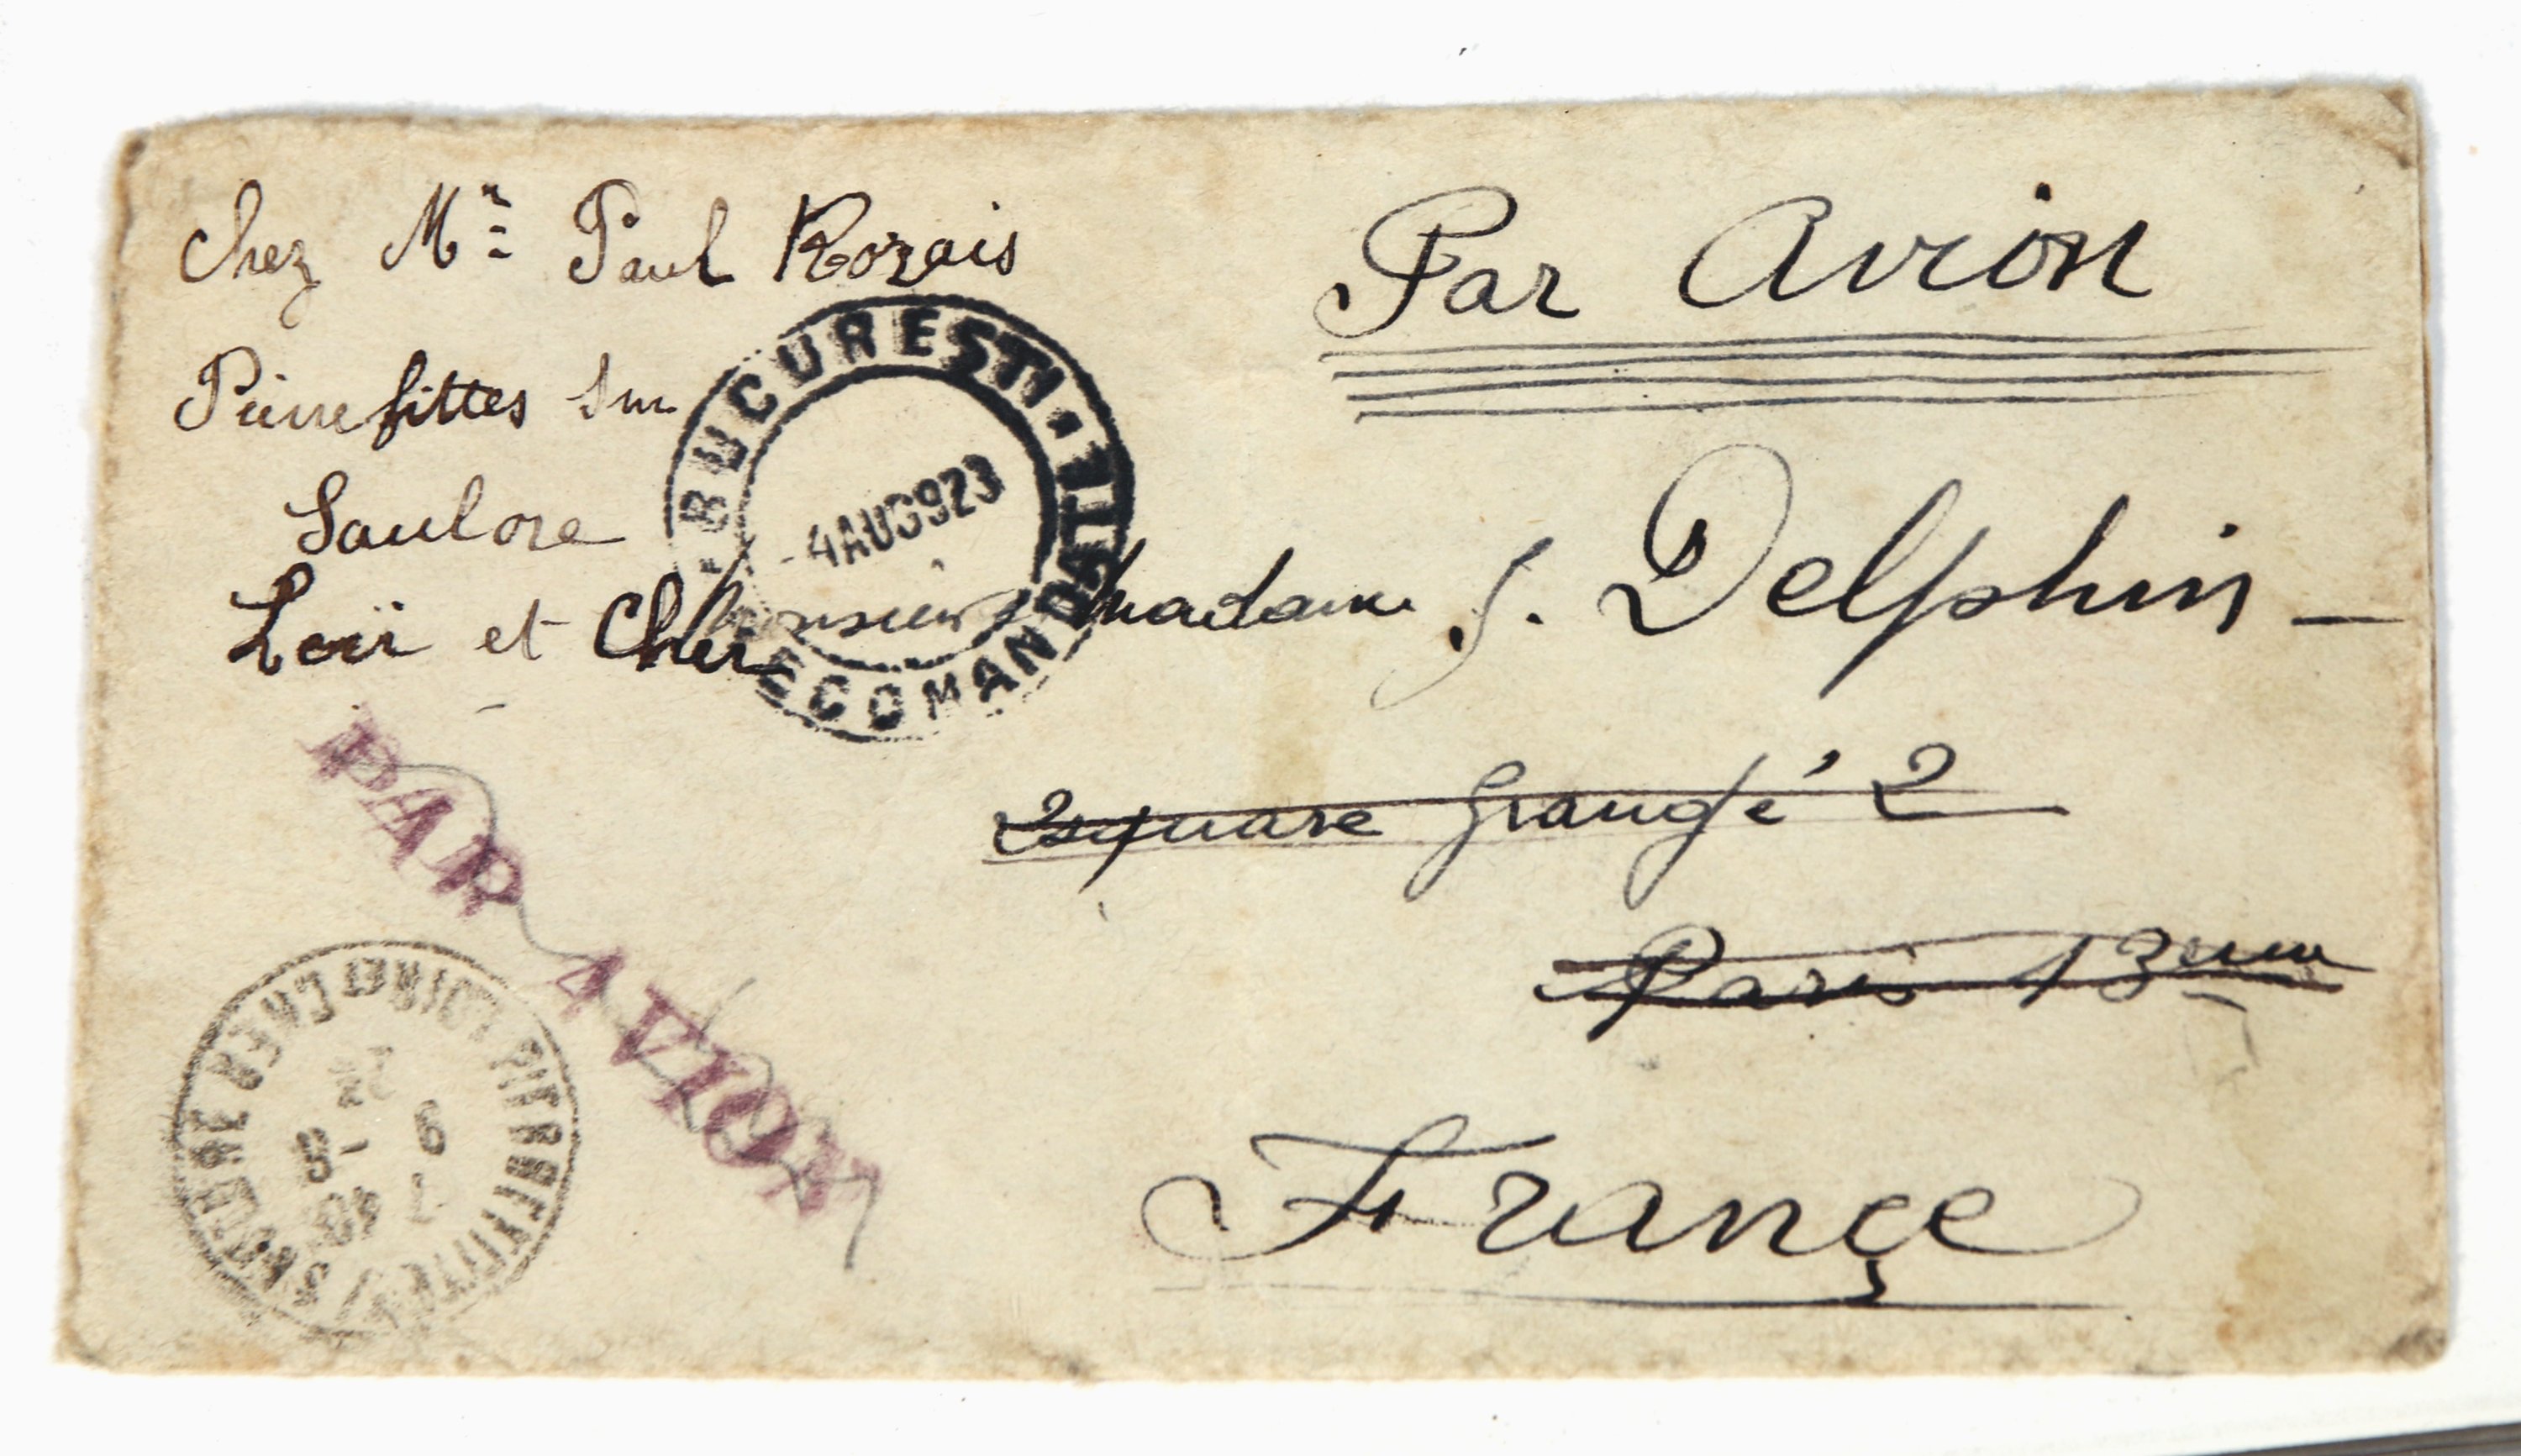 Chez Mr Paul Rozais
Pierrefittes sur
Sauldre
Loir et Cher
Par Avion
BUCURESTI
4 AUG 923
RECOMANDATE
Monsieur Madame S. Delphin -
2 square Grangé 2
Paris 13eme
France
PAR AVION
PIERREFITTE S SAULDRE